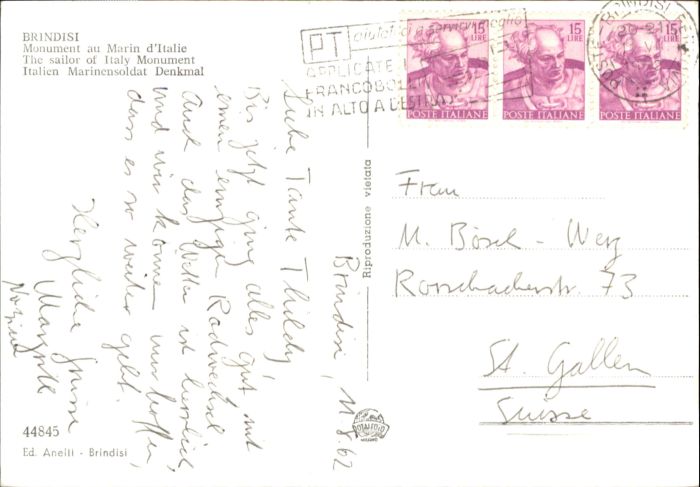 BRINDISI
Monument au Marin d'Italie
The sailor of Italy Monument
Italien Marinensoldat Denkmal
PT
aiutateci a servirvi meglio
APPLICATE I
FRANCOBOLLI
IN ALTO A DESTRA
15 LIRE
POSTE ITALIANE
15 LIRE
POSTE ITALIANE
15 LIRE
POSTE ITALIANE
BRINDISI
Brindisi, 11.8.62
Liebe Tante Thildy,
Bis jetzt ging alles gut mit
einem einzigen Radwechsel.
Auch das Wetter ist herrlich,
und wir können nur hoffen,
dass es so weiter geht.
Herzliche Grüsse
Margrit
Riproduzione vietata
Frau
M. Bösch - Werz
Rorschacherstr. 73
St. Gallen
Suisse
44845
Ed. Anelli - Brindisi